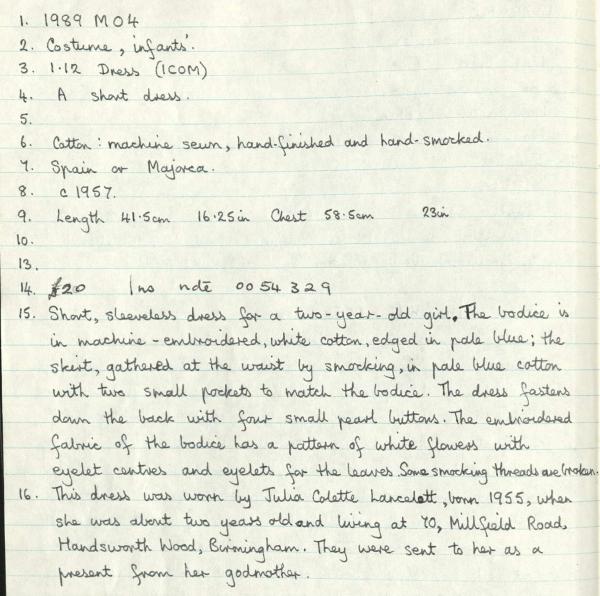 1. 1989 M04
2. Costume, infants'.
3. 1.12 Dress (ICOM)
4. A short dress.
5.
6. Cotton: machine sewn, hand-finished and hand-smocked.
7. Spain or Majorca.
8. c 1957.
9. Length 41.5cm 16.25in Chest 58.5cm 23in
10.
13.
14. £20 Ino note 0054329
15. Short, sleeveless dress for a two-year-old girl. The bodice is
in machine-embroidered, white cotton, edged in pale blue; the
skirt, gathered at the waist by smocking, in pale blue cotton
with two small pockets to match the bodice. The dress fastens
down the back with four small pearl buttons. The embriodered
fabric of the bodice has a pattern of white flowers with
eyelet centres and eyelets for the leaves. Some smocking threads are broken.
16. This dress was worn by Julia Colette Lancelott, born 1955, when
she was about two years old and living at 70, Millfield Road,
Handsworth Wood, Birmingham. They were sent to her as a
present from her godmother.